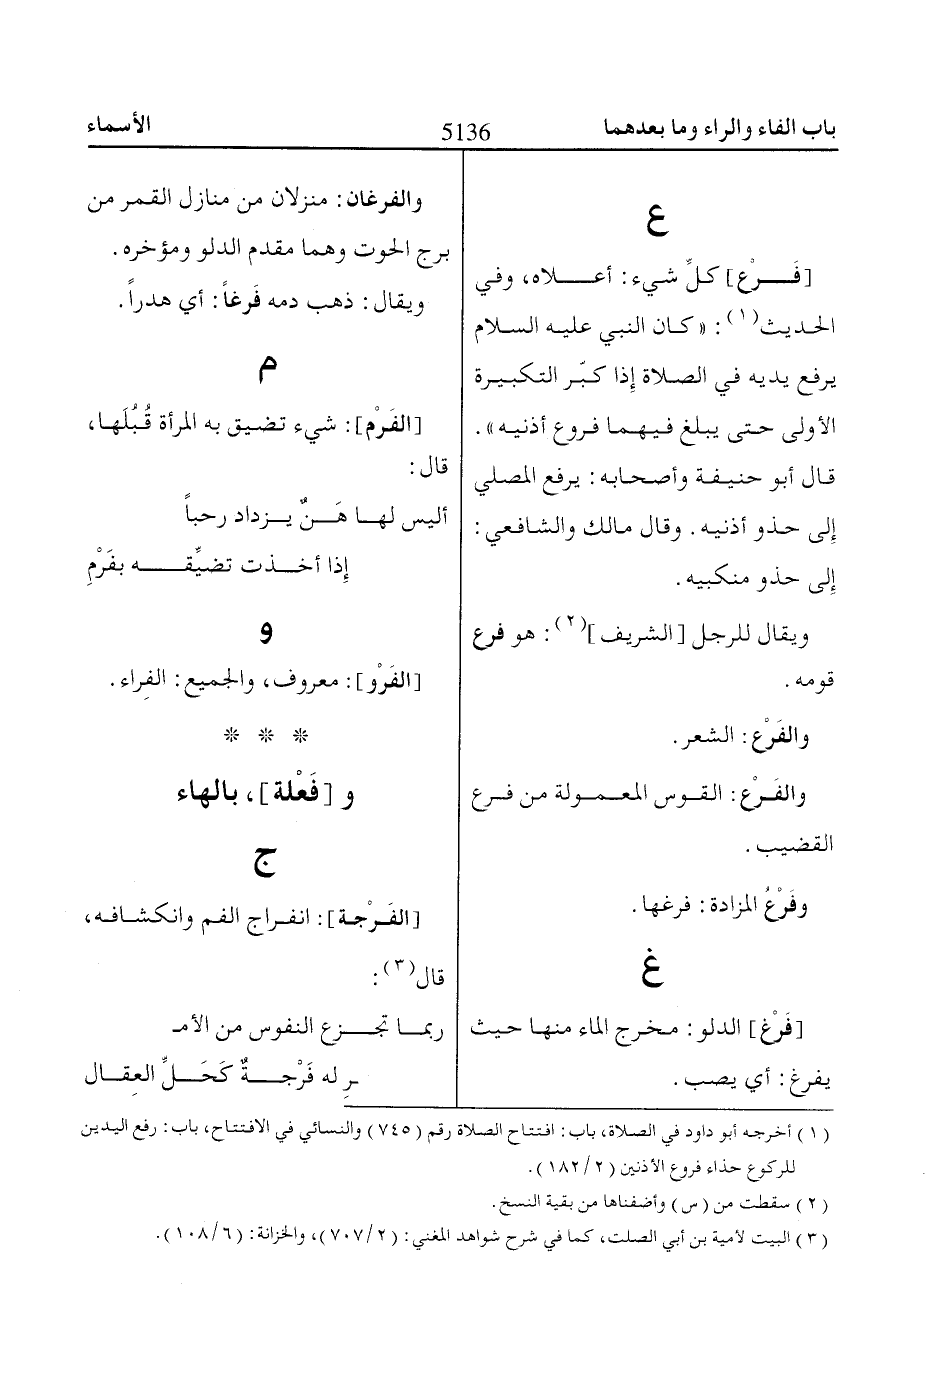 باب الفاء والراء وما بعدهما
5136
الأسماء
ع
[فَـرْع] كلِّ شيء: أعـلاه، وفي
الحديث(١): «كان النبي عليه السلام
يرفع يديه في الصلاة إذا كبّر التكبيرة
الأولى حتى يبلغ فيهما فروع أذنيه».
قال أبو حنيفة وأصحابه: يرفع المصلي
إلى حذو أذنيه. وقال مالك والشافعي:
إلى حذو منكبيه.
ويقال للرجل [الشريف](٢): هو فرع
قومه.
والفَرْع: الشعر.
والفَرْع: القوس المعمولة من فرع
القضيب.
وفَرْغُ المزادة: فرغها.
غ
[فَرْغ] الدلو: مخرج الماء منها حيث
يفرغ: أي يصب.
والفرغان: منزلان من منازل القمر من
برج الحوت وهما مقدم الدلو ومؤخره.
ويقال: ذهب دمه فَرغاً: أي هدراً.
م
[الفَرْم]: شيء تضيق به المرأة قُبُلَها،
قال:
أليس لها هَنٌ يزداد رحباً
إذا أخذت تضيِّقه بفَرْمِ
و
[الفَرْو]: معروف، والجميع: الفِراء.
* * *
و [فَعْلة]، بالهاء
ج
[الفَرْجة]: انفراج الفم وانكشافه،
قال(٣):
ربما تجزع النفوس من الأمـ
ـرِ له فَرْجةٌ كَحَلِّ العِقال
(١) أخرجه أبو داود في الصلاة، باب: افتتاح الصلاة رقم (٧٤٥) والنسائي في الافتتاح، باب: رفع اليدين
للركوع حذاء فروع الأذنين (١٨٢/٢).
(٢) سقطت من (س) وأضفناها من بقية النسخ.
(٣) البيت لأمية بن أبي الصلت، كما في شرح شواهد المغني: (٧٠٧/٢)، والخزانة: (١٠٨/٦).